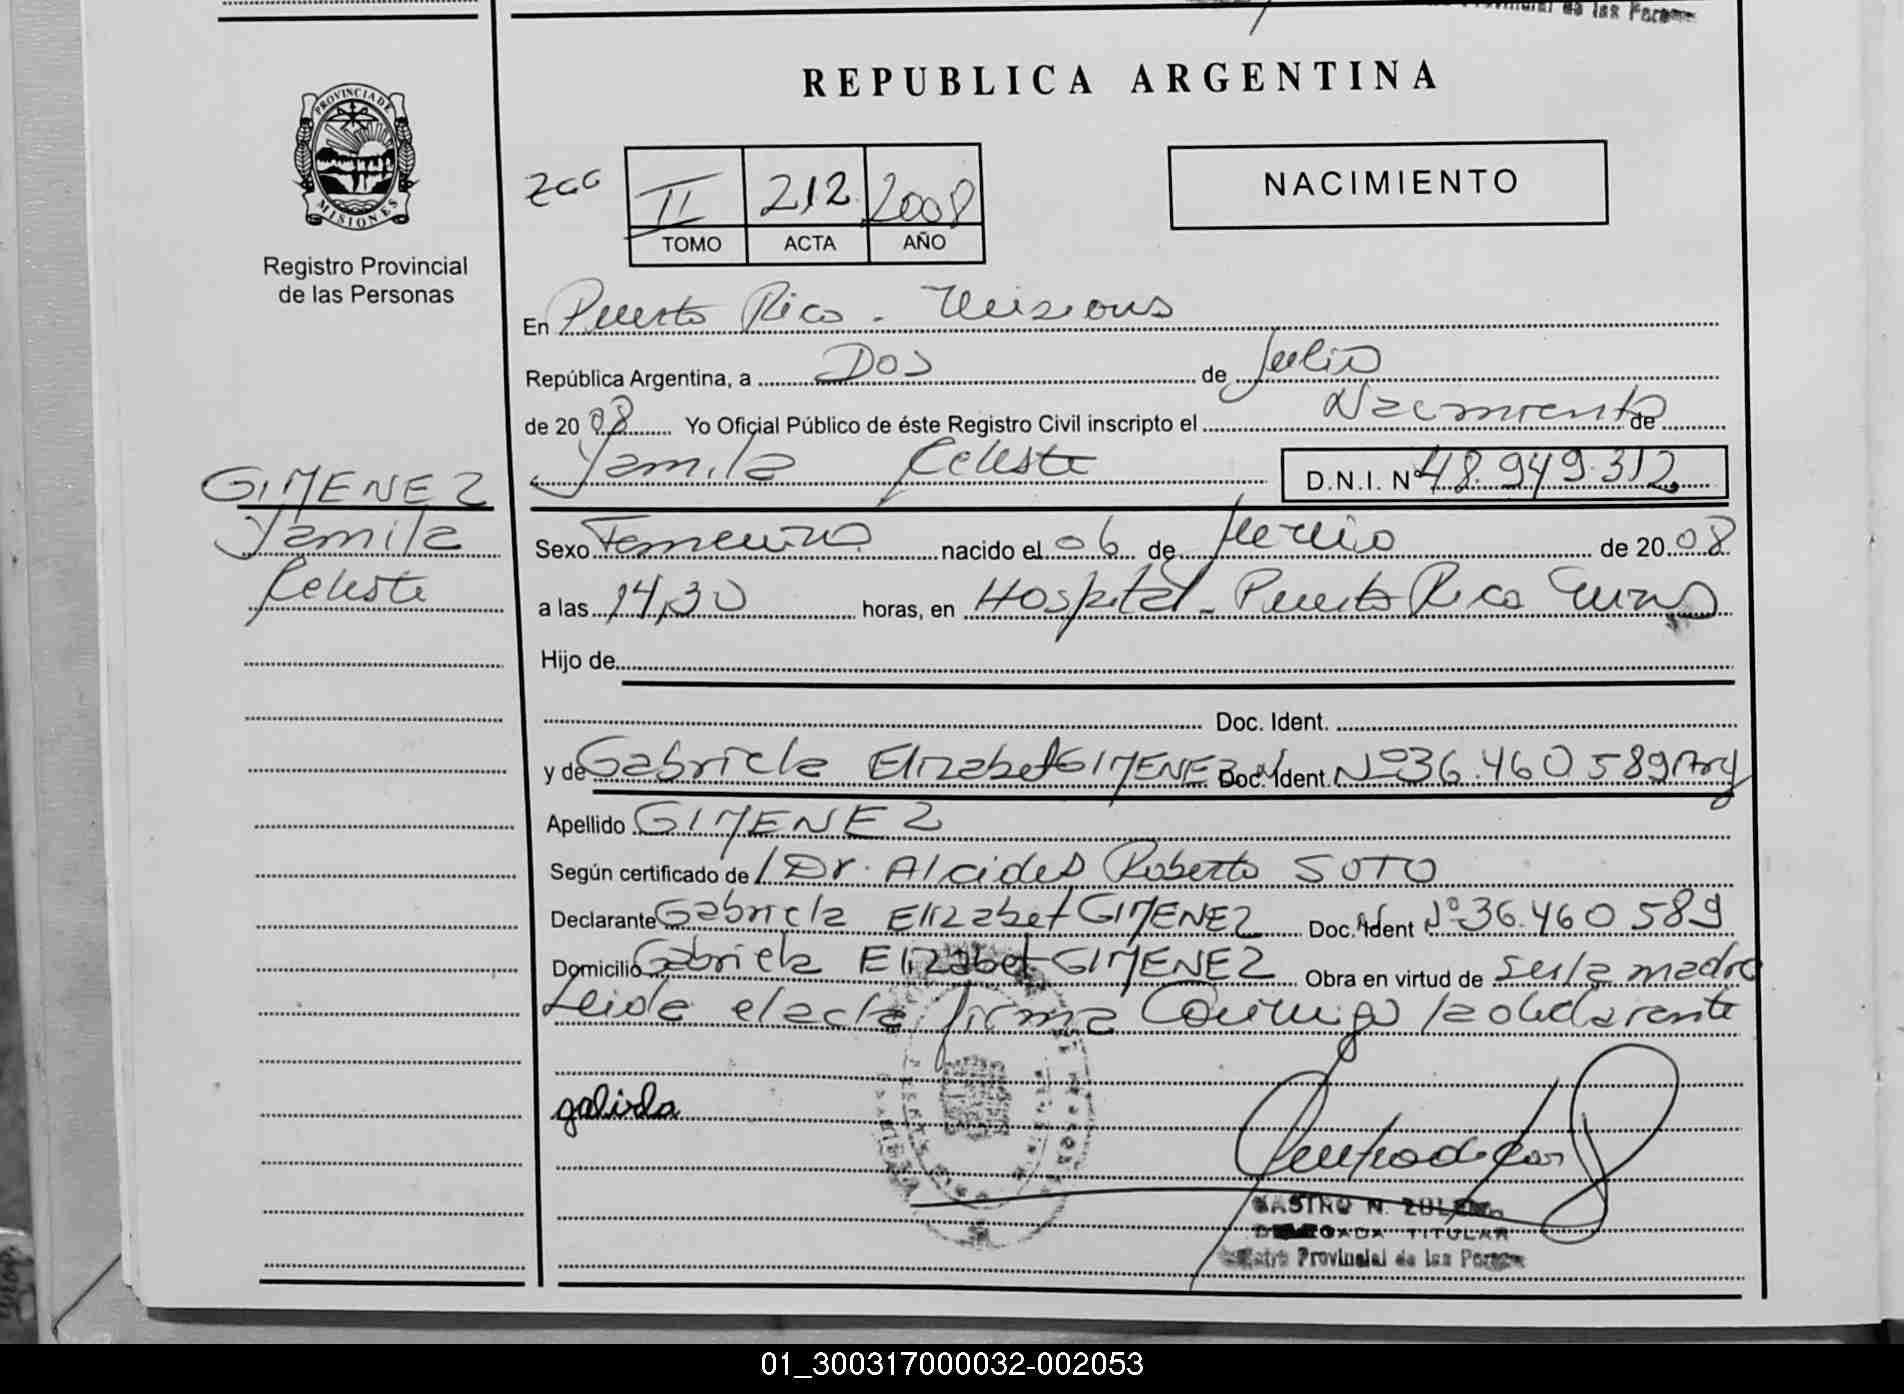 de las Personas
REPUBLICA ARGENTINA
PROVINCIA DE
MISIONES
Registro Provincial
de las Personas
266
II 212 2008
TOMO ACTA AÑO
NACIMIENTO
En Puerto Rico - Misiones
República Argentina, a Dos de Julio
de 2008 Yo Oficial Público de éste Registro Civil inscripto el Nacimiento de
Yamila Celeste D.N.I. Nº 48.949.312
GIMENEZ
Yamila
Celeste
Sexo Femenino nacido el 06 de Junio de 2008
a las 14,30 horas, en Hospital - Puerto Rico
Hijo de
Doc. Ident.
y de Gabriela Elizabet GIMENEZ Doc. Ident. Nº 36.460 589 Arg
Apellido GIMENEZ
Según certificado de Dr. Alcides Roberto SOTO
Declarante Gabriela Elizabet GIMENEZ Doc. Ident Nº 36.460 589
Domicilio Gabriela Elizabet GIMENEZ Obra en virtud de ser la madre
Leida el acta firma Conmigo la declarante
CASTRO N.
DELEGADA TITULAR
Registro Provincial de las Personas
01_300317000032-002053